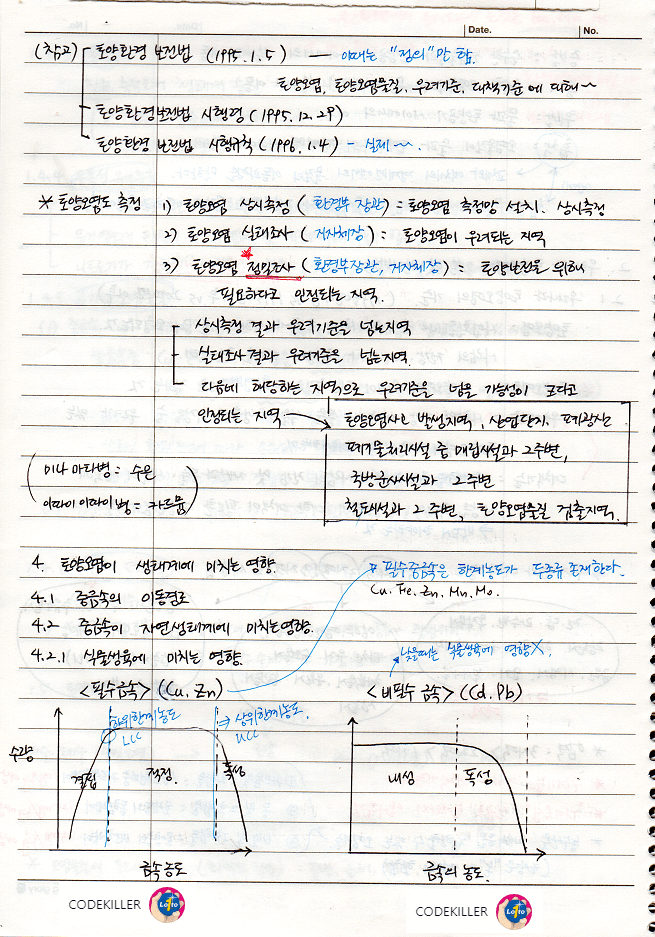 Date. No.
(참고) 토양환경 보전법 (1995.1.5) — 이때는 "정의"만 함.
토양오염, 토양오염물질, 우려기준, 대책기준에 대해~
토양환경보전법 시행령 (1995.12.29)
토양환경보전법 시행규칙 (1996.1.4) - 실제~.
* 토양오염도 측정 1) 토양오염 상시측정 (환경부 장관) = 토양오염 측정망 설치. 상시측정
2) 토양오염 실태조사 (지자체장) = 토양오염이 우려되는 지역
3) 토양오염 정밀조사 (환경부장관, 지자체장) = 토양보전을 위해
필요하다고 인정되는 지역.
상시측정 결과 우려기준을 넘는지역
실태조사 결과 우려기준을 넘는지역.
다음에 해당하는 지역으로 우려기준을 넘을 가능성이 크다고
인정되는 지역 → 토양오염사고 발생지역, 산업단지. 폐광산
폐기물처리시설 중 매립시설과 그주변,
국방군사시설과 그주변
철도시설과 그주변, 토양오염물질 검출지역.
(미나마타병 = 수은
이따이이따이병 = 카드뮴)
4. 토양오염이 생태계에 미치는 영향.
▫ 필수중금속은 한계농도가 두종류 존재한다.
Cu. Fe. Zn. Mn. Mo.
4.1 중금속의 이동경로
4.2 중금속이 자연생태계에 미치는영향.
4.2.1 식물생육에 미치는 영향.
낮을때는 식물생육에 영향X.
<필수금속> (Cu, Zn)
<비필수 금속> (Cd. Pb)
하위한계농도
LLC
→ 상위한계농도.
UCC
수확량
결핍 적정. 독성
내성 독성
금속농도
금속의 농도.
CODEKILLER Lotto
CODEKILLER Lotto